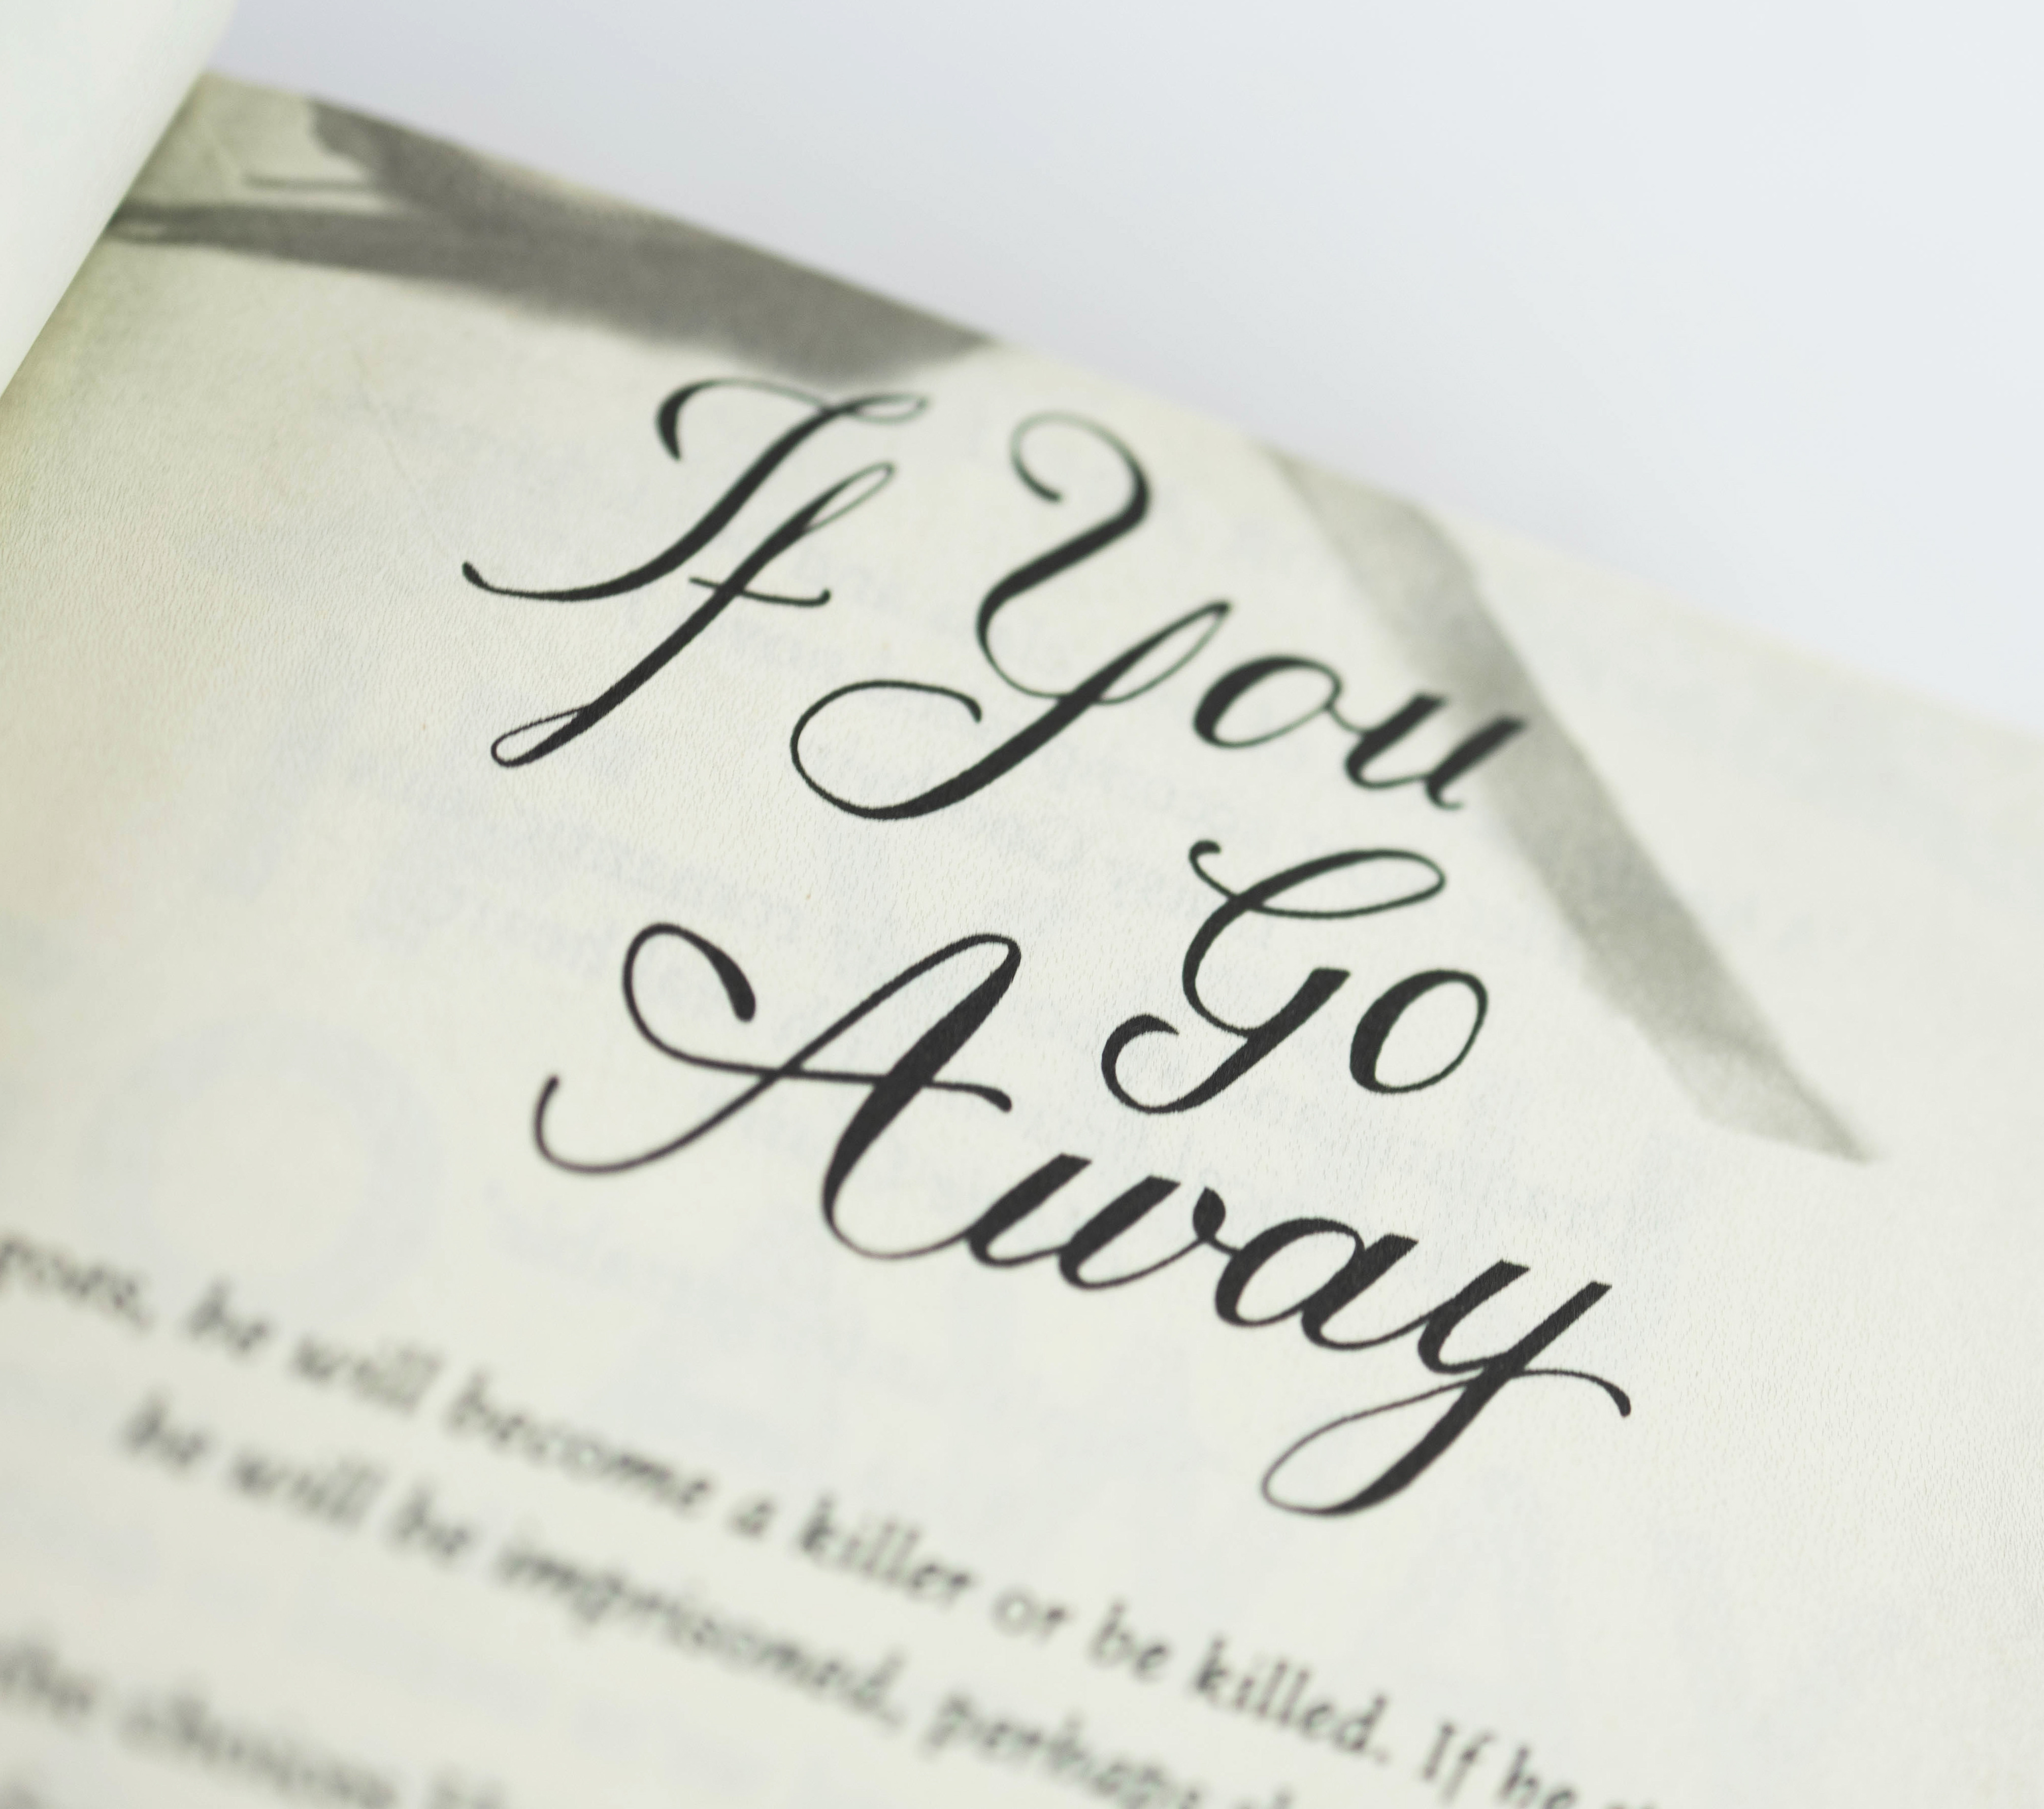 If You
Go
Away
goes, he will become a killer or be killed. If he
he will be imprisoned, perhaps
the choice